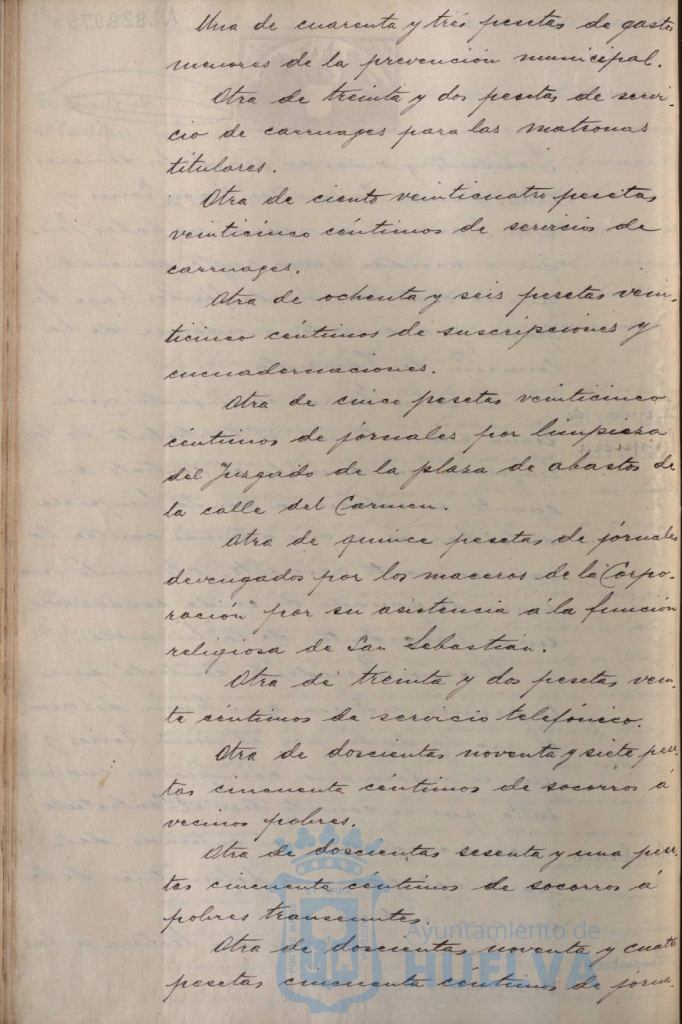 Una de cuarenta y tres pesetas de gastos
menores de la prevención municipal.
Otra de treinta y dos pesetas de servi-
cio de carruages para las matronas
titulares.
Otra de ciento veinticuatro pesetas
veinticinco céntimos de servicios de
carruages.
Otra de ochenta y seis pesetas vein-
ticinco céntimos de suscripciones y
encuadernaciones.
Otra de cinco pesetas veinticinco
céntimos de jornales por limpieza
del Juzgado de la plaza de abastos de
la calle del Carmen.
Otra de quince pesetas de jórnales
devengados por los maceros de la Corpo-
ración por su asistencia á la función
religiosa de San Sebastián.
Otra de treinta y dos pesetas vein-
te céntimos de servicio telefónico.
Otra de doscientas noventa y siete pese-
tas cincuenta céntimos de socorros á
vecinos pobres.
Otra de doscientas sesenta y una pese-
tas cincuenta céntimos de socorros á
pobres transeuntes.
Otra de doscientas noventa y cuatro
pesetas cincuenta centimos de jorna-
Ayuntamiento de
HUELVA